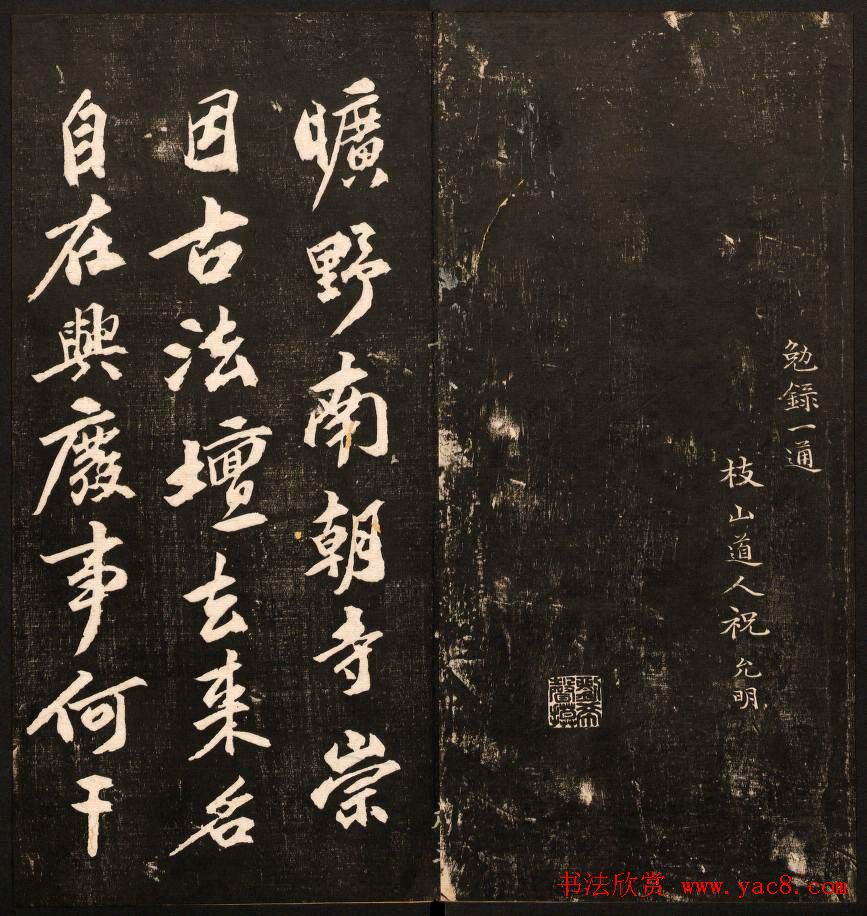 勉錄一通
枝山道人祝允明
曠野南朝寺崇
因古法壇去來名
自在興廢事何干
书法欣赏 www.yac8.com